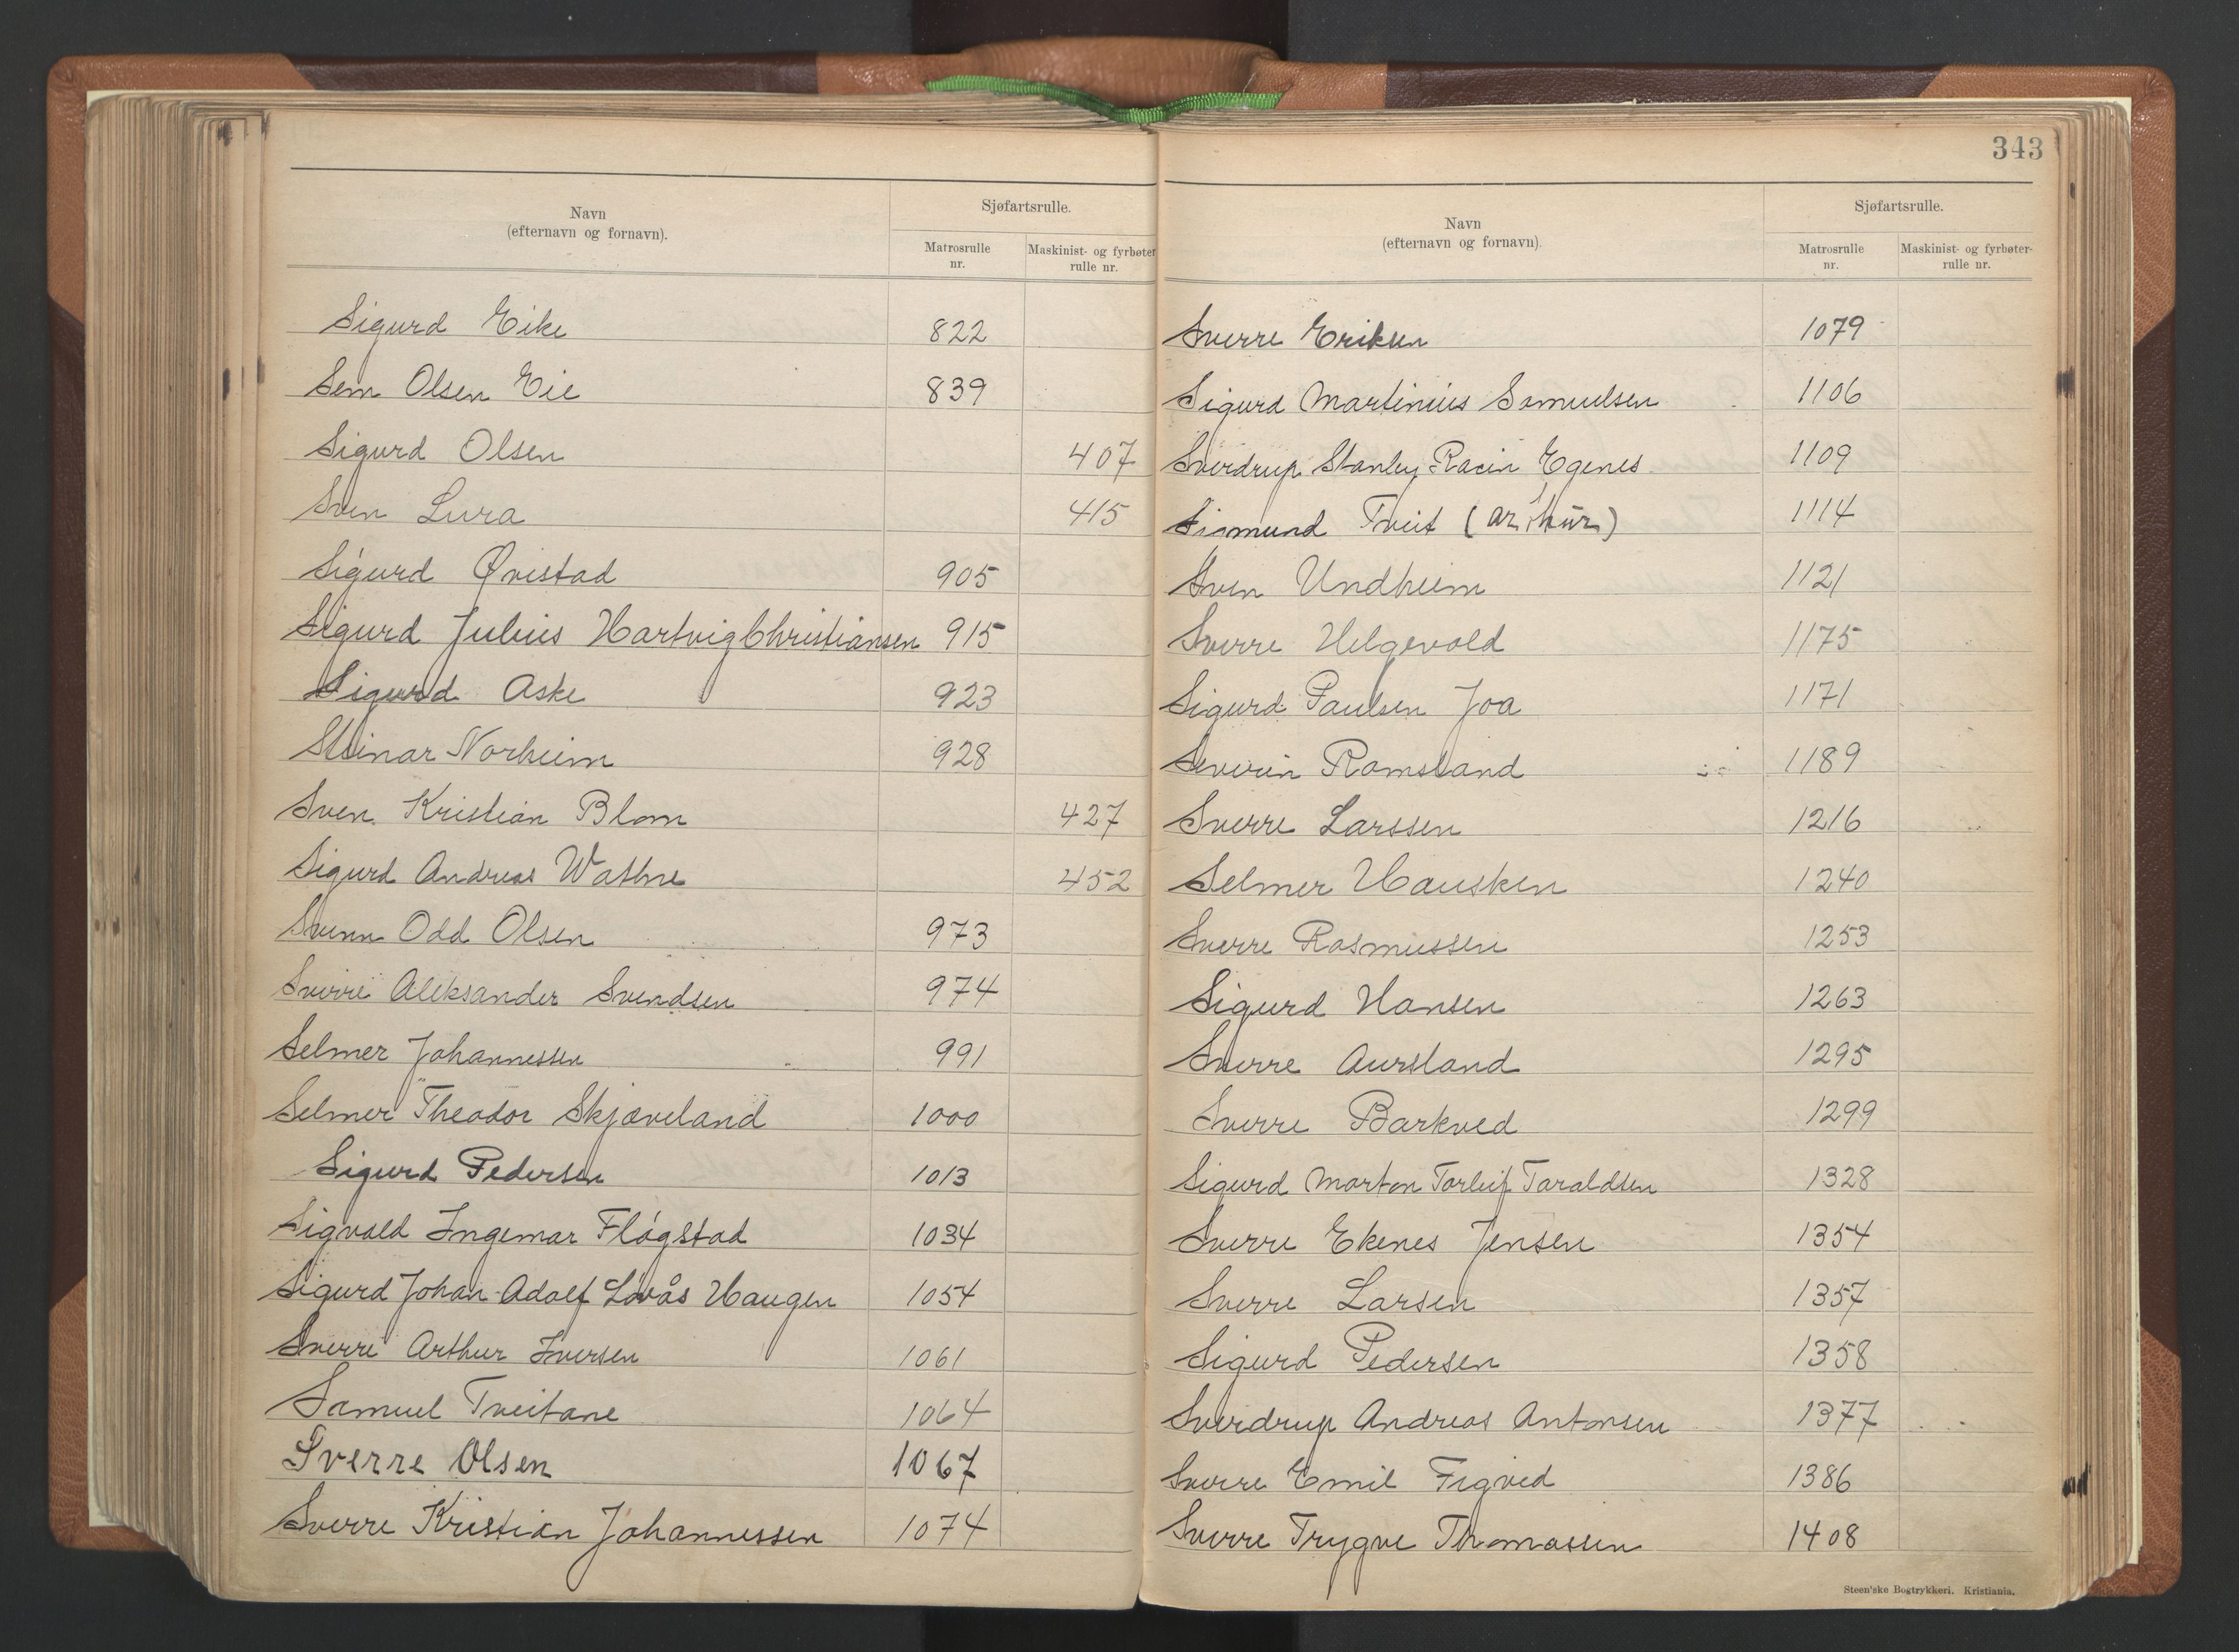 Navn
(efternavn og fornavn).
Sjøfartsrulle.
Matrosrulle nr.
Maskinist- og fyrbøter rulle nr.
Sigurd Eike 822
Sem Olsen Eie 839
Sigurd Olsen 407
Sven Lura 415
Sigurd Qvistad 905
Sigurd Julius Hartvig Christiansen 915
Sigurd Aske 923
Steinar Norheim 928
Sven Kristian Blom 427
Sigurd Andreas Wathne 452
Svenn Odd Olsen 973
Sverre Aleksander Svendsen 974
Selmer Johannessen 991
Selmer Theodor Skjæveland 1000
Sigurd Pedersen 1013
Sigvald Ingemar Fløgstad 1034
Sigurd Johan Adolf Løvås Haugen 1054
Sverre Arthur Iversen 1061
Samuel Tveitane 1064
Sverre Olsen 1067
Sverre Kristian Johannessen 1074
343
Navn
(efternavn og fornavn).
Sjøfartsrulle.
Matrosrulle nr.
Maskinist- og fyrbøter- rulle nr.
Sverre Eriksen 1079
Sigurd Martinius Samuelsen 1106
Sverdrup Stanley Racin Egenes 1109
Sigmund Tveit (Arthur) 1114
Sven Undheim 1121
Sverre Helgevold 1175
Sigurd Paulsen Joa 1171
Severin Ramsland 1189
Sverre Larssen 1216
Selmer Hausken 1240
Sverre Rasmussen 1253
Sigurd Hansen 1263
Sverre Aursland 1295
Sverre Barkved 1299
Sigurd Morton Torleif Taraldsen 1328
Sverre Ekenes Jensen 1354
Sverre Larsen 1357
Sigurd Pedersen 1358
Sverdrup Andreas Antonsen 1377
Sverre Emil Figved 1386
Sverre Trygve Thomassen 1408
Steen'ske Bogtrykkeri. Kristiania.